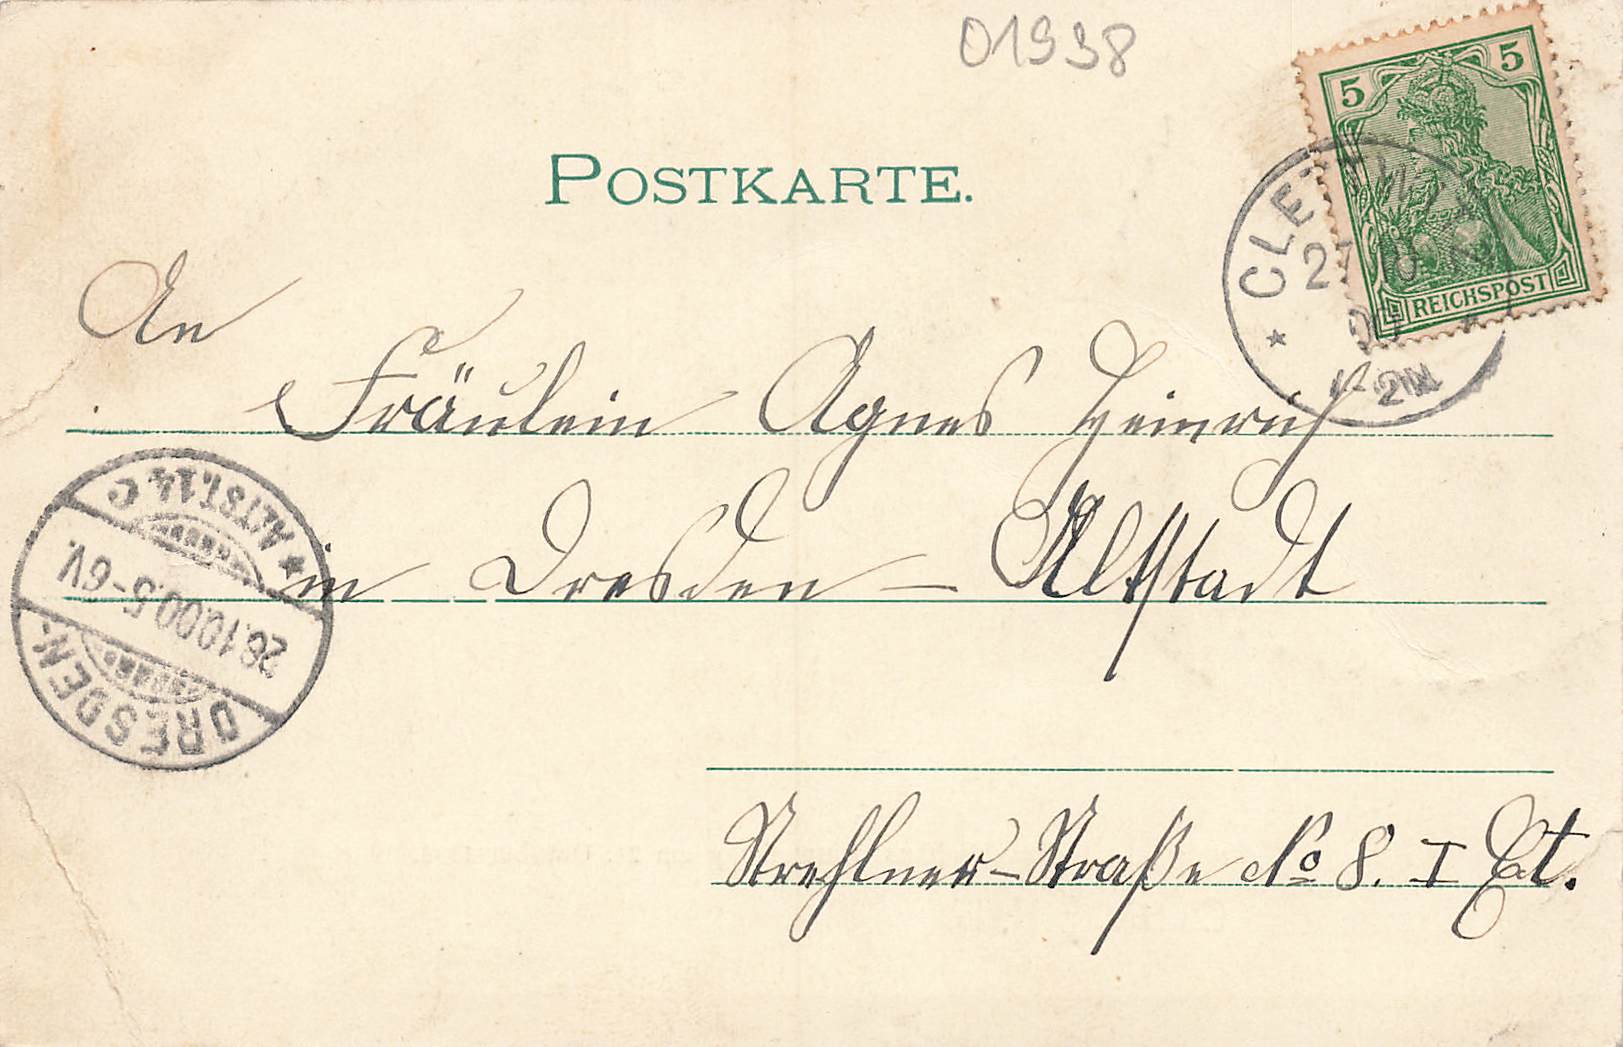 01938
5 5
REICHSPOST
POSTKARTE.
27 10
00
An
Fräulein Agnes Heinrich
in Dresden – Altstadt
Strehlner-Straße No 8. I Et.
DRESDEN-
28.10.00.5-6V.
* ALTST.14 c